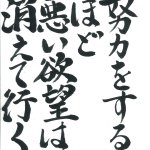 努力をする
ほど
悪い欲望は
消えて行く